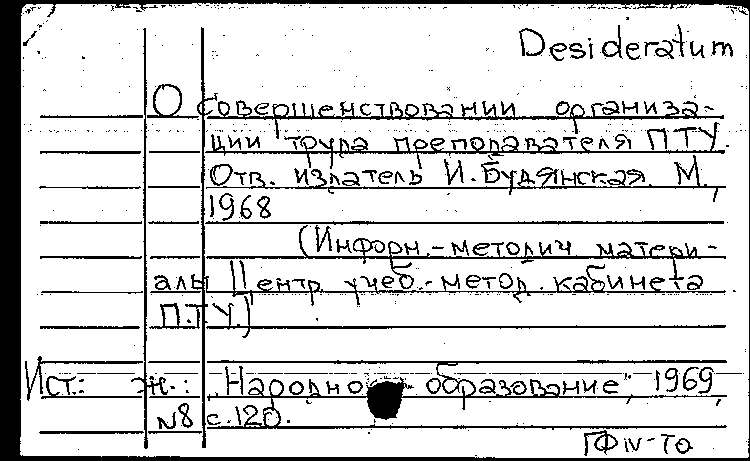 Desideratum
О совершенствовании организа-
ции труда преподавателя ПТУ.
Отв. издатель И. Будянская. М.,
1968
(Информ.-методич матери-
алы Центр. учеб.-метод. кабинета
П.Т.У.)
Ист.: ж.: „Народное образование", 1969,
N8 с.120.
ГФ IV-70